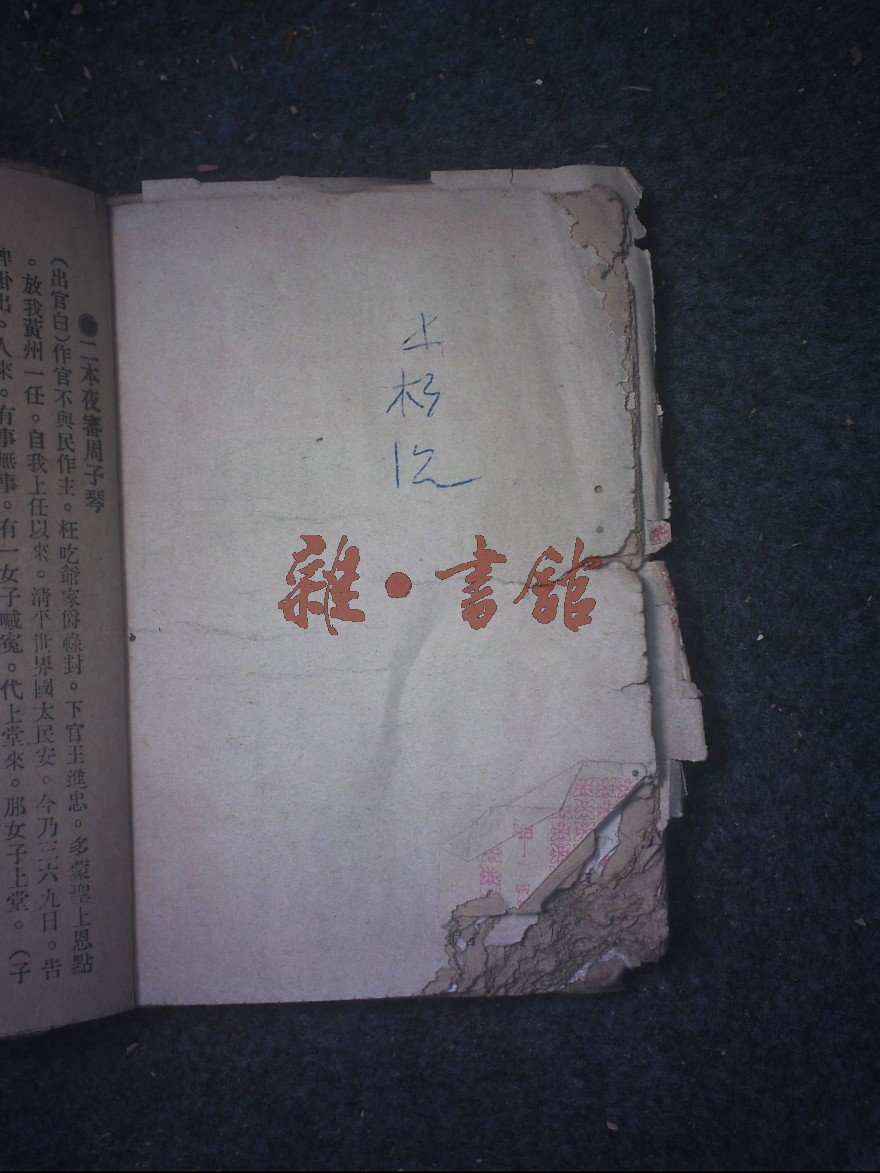 雜·書館
●二本夜審周子琴
(出官白)作官不與民作主。枉吃爺家爵祿封。下官王進忠。多蒙聖上恩點
。放我黃州一任。自我上任以來。清平世界國太民安。今乃三六九日。告
牌掛出。人來。有事無事。有一女子喊寃。代上堂來。那女子上堂。(子